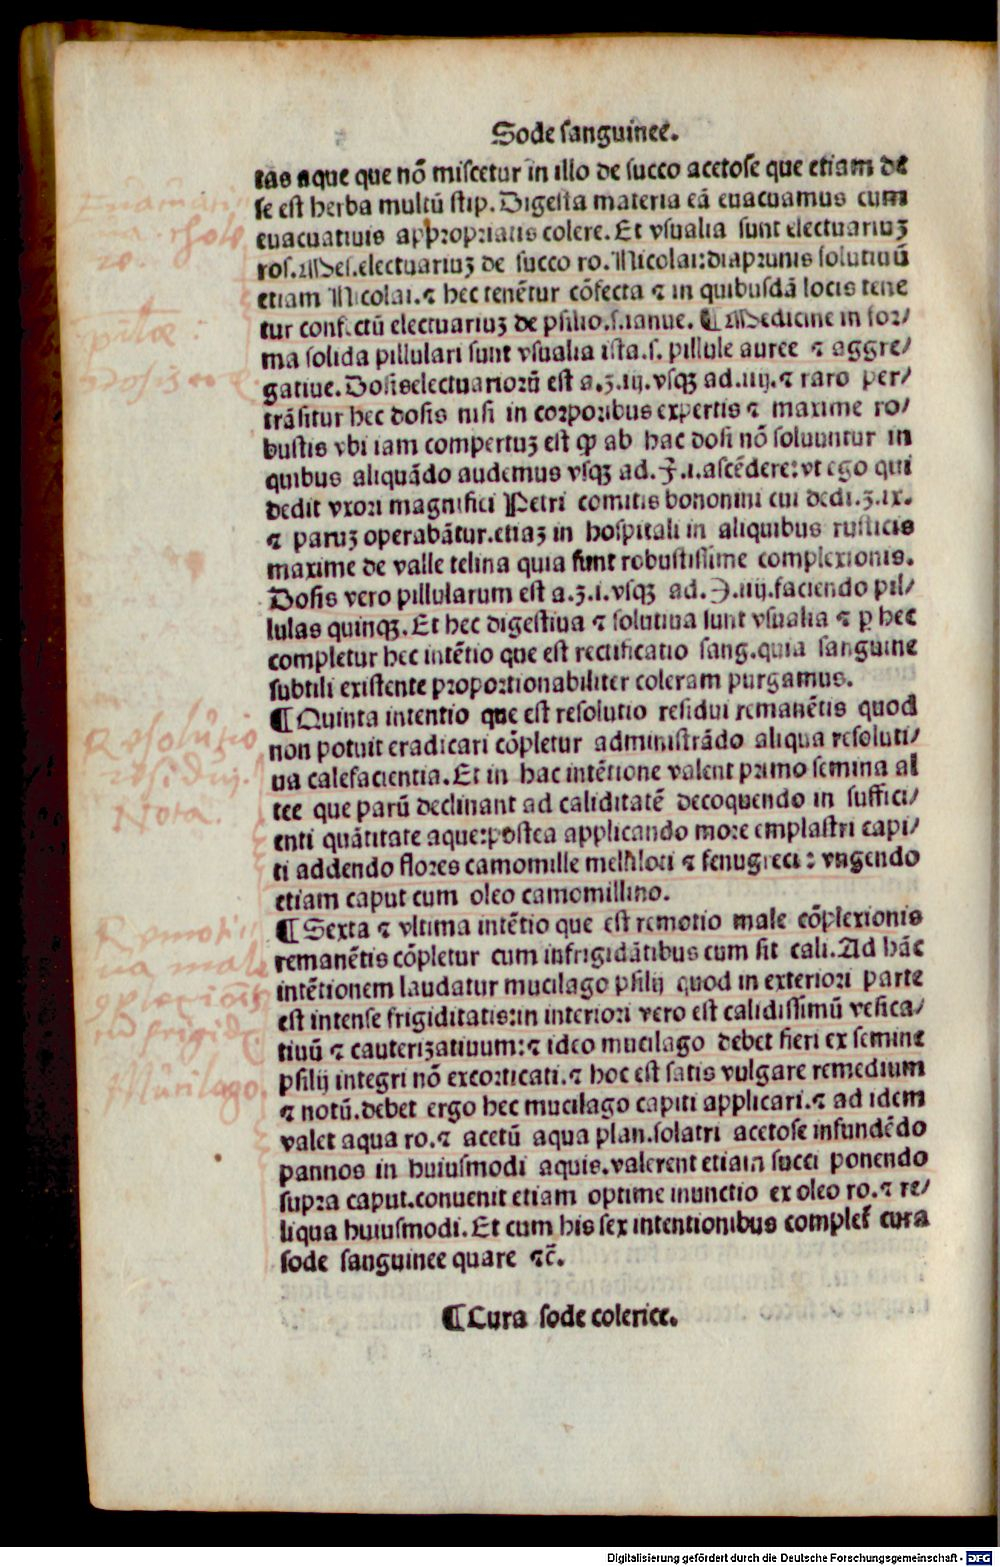 Sode sanguinee.
tas aque que nõ miscetur in illo de succo acetose que etiam de
se est herba multũ stip. Digesta materia eã euacuamus cum
euacuatiuis appropriatis colere. Et vsualia sunt electuariuꝫ
ros. Mes. electuariuꝫ de succo ro. Nicolai: diaprunis solutiuũ
etiam Nicolai. ⁊ hec tenẽtur cõfecta ⁊ in quibusdã locis tene
tur confectũ electuariuꝫ de psilio .s. ianue. ¶ Medicine in for/
ma solida pillulari sunt vsualia ista .s. pillule auree ⁊ aggre/
gatiue. Dosis electuariorũ est a .ʒ. iij. vsqꝫ ad .iiij. ⁊ raro per/
trãsitur hec dosis nisi in corporibus expertis ⁊ maxime ro/
bustis vbi iam compertuꝫ est ꝙ ab hac dosi nõ soluuntur in
quibus aliquãdo audemus vsqꝫ ad .℥. i. ascẽdere: vt ego qui
dedit vxori magnifici Petri comitis bononini cui dedi .ʒ. ix.
⁊ paruꝫ operabãtur. etiaꝫ in hospitali in aliquibus rusticis
maxime de valle telina quia sunt robustissime complexionis.
Dosis vero pillularum est a .ʒ. i. vsqꝫ ad .℈. iiij. faciendo pil/
lulas quinqꝫ. Et hec digestiua ⁊ solutiua sunt vsualia ⁊ ꝑ hec
completur hec intẽtio que est rectificatio sang. quia sanguine
subtili existente proportionabiliter coleram purgamus.
¶ Quinta intentio que est resolutio residui remanẽtis quod
non potuit eradicari cõpletur administrãdo aliqua resoluti/
ua calefacientia. Et in hac intẽtione valent primo semina al
tee que parũ declinant ad caliditatẽ decoquendo in suffici/
enti quãtitate aque: postea applicando more emplastri capi/
ti addendo flores camomille melliloti ⁊ fenugreci: vngendo
etiam caput cum oleo camomillino.
¶ Sexta ⁊ vltima intẽtio que est remotio male cõplexionis
remanẽtis cõpletur cum infrigidãtibus cum sit cali. Ad hãc
intẽtionem laudatur mucilago psilij quod in exteriori parte
est intense frigiditatis: in interiori vero est calidissimũ vesica/
tiuũ ⁊ cauterizatiuum: ⁊ ideo mucilago debet fieri ex semine
psilij integri nõ excorticati. ⁊ hoc est satis vulgare remedium
⁊ notũ. debet ergo hec mucilago capiti applicari. ⁊ ad idem
valet aqua ro. ⁊ acetũ aqua plan. solatri acetose infundẽdo
pannos in huiusmodi aquis. valerent etiam succi ponendo
supra caput. conuenit etiam optime inunctio ex oleo ro. ⁊ re/
liqua huiusmodi. Et cum his sex intentionibus complet᷑ cura
sode sanguinee quare ⁊c̃.
¶ Cura sode colerice.
Resolutio
residuj.
Nota.
Mucilago.
Digitalisierung gefördert durch die Deutsche Forschungsgemeinschaft - DFG